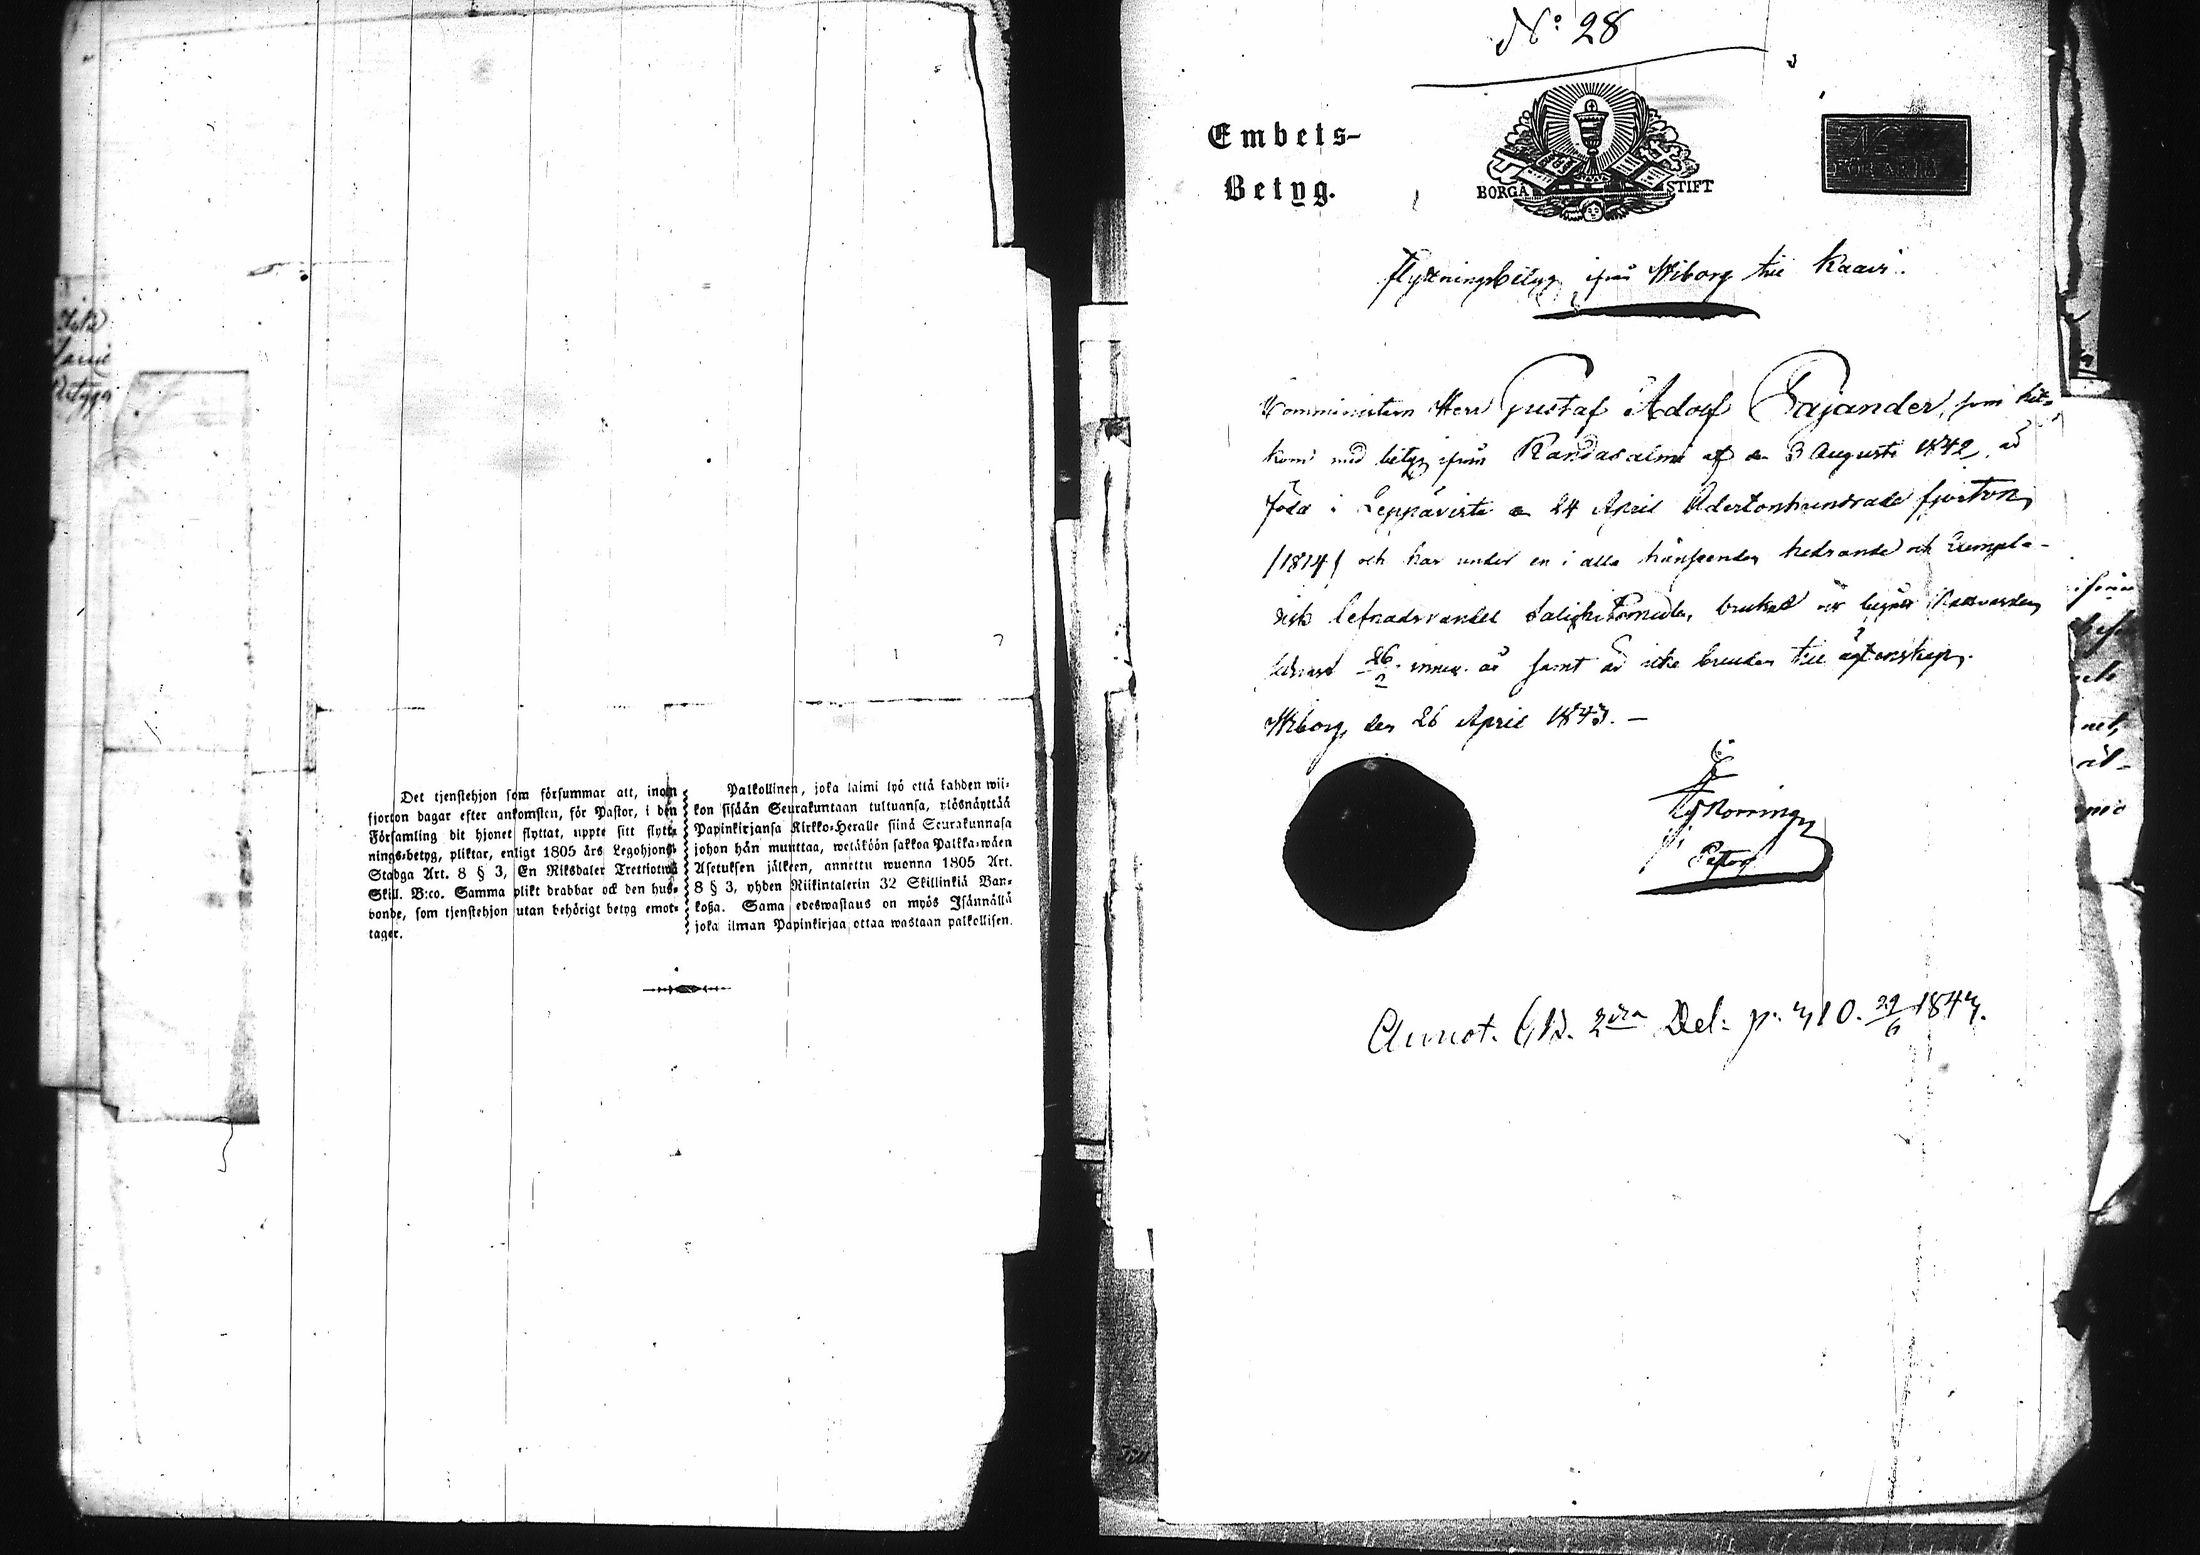 Det tjenstehjon som försummar att, inom
fjorton dagar efter ankomsten, för Pastor, i den
Församling dit hjonet flyttat, uppte sitt flytt-
nings-betyg, pliktar, enligt 1805 års Legohjons-
Stadga Art. 8 § 3, En Riksdaler Trettiotvå
Skill. B:co. Samma plikt drabbar ock den hus-
bonde, som tjenstehjon utan behörigt betyg emot-
tager.
Palkollinen, joka laimi lyö että kahden wii-
kon sisään Seurakuntaan tultuansa, ylösnäyttää
Papinkirjansa Kirkko-Heralle siinä Seurakunnasa
johon hän muuttaa, wetäköön sakkoa Palkka-wäen
Asetuksen jälkeen, annettu wuonna 1805 Art.
8 § 3, yhden Riikintalerin 32 Skillinkiä Ban-
koßa. Sama edeswastaus on myös Isännällä
joka ilman Papinkirjaa ottaa wastaan palkollisen.
N:o 28
Embets-
Betyg.
BORGÅ STIFT
Flyttningsbetyg ifrån Wiborg till Kaavi.
Komministern Herr Gustaf Adolf Cajander, som hit-
kom med betyg ifrån Randasalmi af den 3 Augusti 1842, är
född i Leppävirta den 24 April Adertonhundrade fjorton
/1814/ och har under en i alla hänseenden hedrande och exempla-
risk lefnadsvandel salighetsmedlen, brukat
26/2 innev. år samt är icke bunden till äktenskap.
Wiborg den 26 April 1843. –
Pastor
Annot. C.B. 2dra Del. p. 410. 29/6 1843.